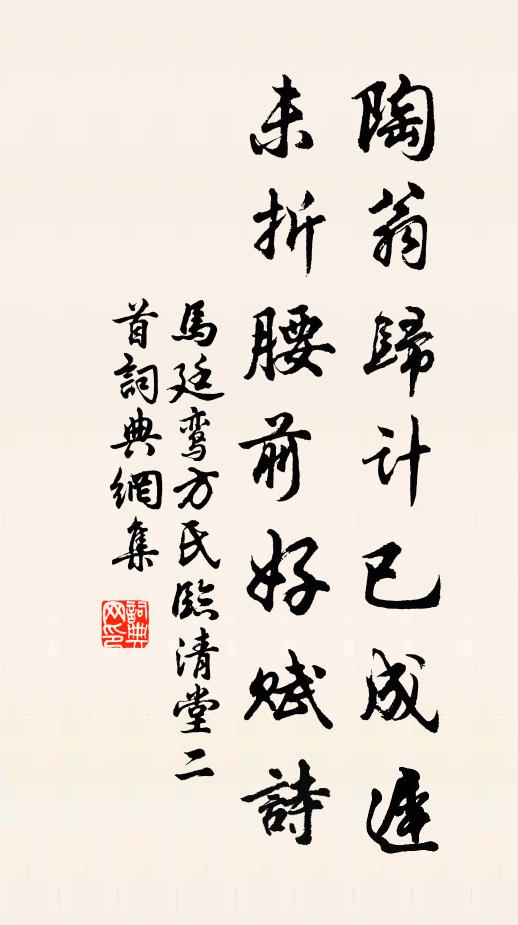 陶翁歸計已成遲
未折腰前好賦詩
馬廷鸾方氏臨清堂二
首詞典網集
詞典
网印